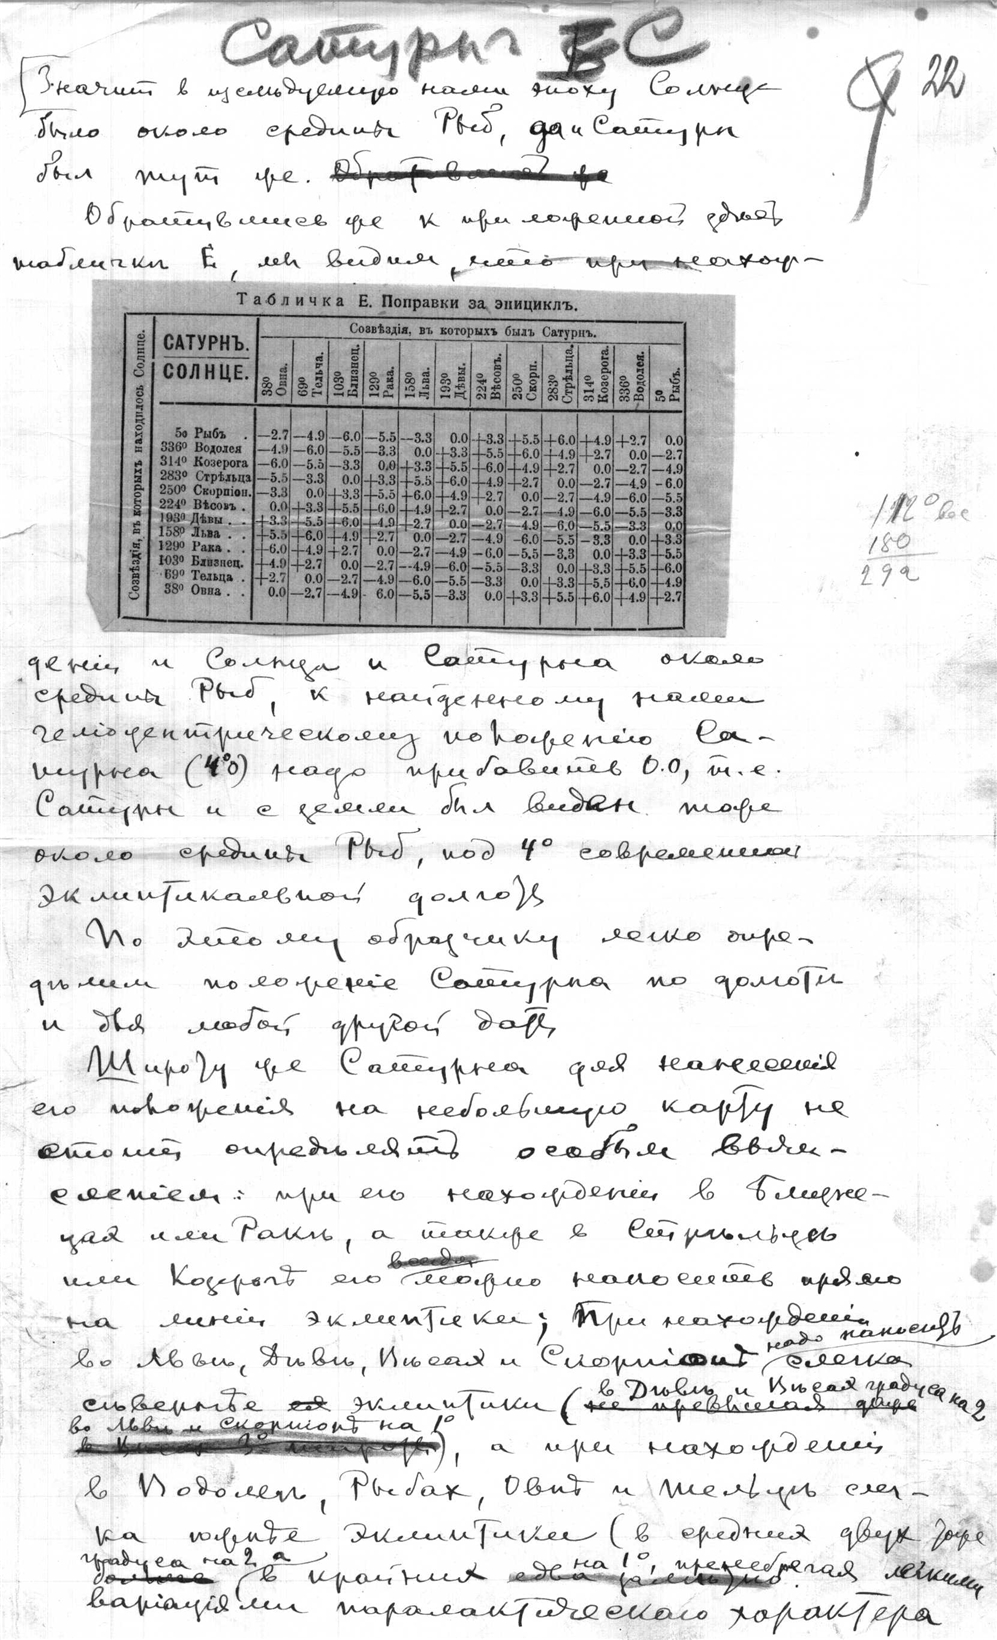 Сатурнъ С
22
Значит в изслѣдуемую нами эпоху Солнце
было около средины Рыб, да и Сатурн
был тут же.
Обратившись же к приложенной здѣсь
табличкѣ Е, мы видим, что при нахож-
Табличка Е. Поправки за эпициклъ.
Созвѣздія, въ которыхъ находилось Солнце.
САТУРНЪ.
СОЛНЦЕ.
Созвѣздія, въ которыхъ былъ Сатурнъ.
38⁰ Овна. 69⁰ Тельца. 103⁰ Близнец. 129⁰ Рака. 158⁰ Льва. 193⁰ Дѣвы. 224⁰ Вѣсовъ. 250⁰ Скорп. 283⁰ Стрѣльца. 314⁰ Козерога. 336⁰ Водолея. 5⁰ Рыбъ.
5⁰ Рыбъ . −2.7 −4.9 −6.0 −5.5 −3.3 0.0 +3.3 +5.5 +6.0 +4.9 +2.7 0.0
336⁰ Водолея −4.9 −6.0 −5.5 −3.3 0.0 +3.3 +5.5 +6.0 +4.9 +2.7 0.0 −2.7
314⁰ Козерога −6.0 −5.5 −3.3 0.0 +3.3 +5.5 +6.0 +4.9 +2.7 0.0 −2.7 −4.9
283⁰ Стрѣльца −5.5 −3.3 0.0 +3.3 +5.5 +6.0 +4.9 +2.7 0.0 −2.7 −4.9 −6.0
250⁰ Скорпіон. −3.3 0.0 +3.3 +5.5 +6.0 +4.9 +2.7 0.0 −2.7 −4.9 −6.0 −5.5
224⁰ Вѣсовъ . 0.0 +3.3 +5.5 +6.0 +4.9 +2.7 0.0 −2.7 −4.9 −6.0 −5.5 −3.3
193⁰ Дѣвы . . +3.3 +5.5 +6.0 +4.9 +2.7 0.0 −2.7 −4.9 −6.0 −5.5 −3.3 0.0
158⁰ Льва . . +5.5 +6.0 +4.9 +2.7 0.0 −2.7 −4.9 −6.0 −5.5 −3.3 0.0 +3.3
129⁰ Рака . . +6.0 +4.9 +2.7 0.0 −2.7 −4.9 −6.0 −5.5 −3.3 0.0 +3.3 +5.5
103⁰ Близнец. +4.9 +2.7 0.0 −2.7 −4.9 −6.0 −5.5 −3.3 0.0 +3.3 +5.5 +6.0
69⁰ Тельца . +2.7 0.0 −2.7 −4.9 −6.0 −5.5 −3.3 0.0 +3.3 +5.5 +6.0 +4.9
38⁰ Овна . . 0.0 −2.7 −4.9 6.0 −5.5 −3.3 0.0 +3.3 +5.5 +6.0 +4.9 +2.7
112⁰
180
292
деніи и Солнца и Сатурна около
средины Рыб, к найденному нами
геліоцентрическому положенію Са-
турна (4⁰) надо прибавить 0.0, т.е.
Сатурн и с земли был виден тоже
около средины Рыб, под 4⁰ современной
эклиптикальной долготы
По этому образчику легко опре-
дѣлим положеніе Сатурна по долготѣ
и для любой другой даты
Широту же Сатурна для нанесенія
его положенія на небольшую карту не
стоит опредѣлять особым вычи-
сленіем: при его нахожденіи в Близне-
цах или Ракѣ, а также в Стрѣльцѣ
или Козерогѣ его можно наносить прямо
на линіи эклиптики; При нахожденіи
во Львѣ, Дѣвѣ, Вѣсах и Скорпіонѣ надо наносить слегка
сѣвернѣе эклиптики (в Дѣвѣ и Вѣсах градуса на 2
во Львѣ и Скорпіонѣ на 1⁰), а при нахожденіи
в Водолеѣ, Рыбах, Овнѣ и Тельцѣ слег-
ка южнѣе эклиптики (в средних двух тоже
градуса на 2, а в крайних на 1⁰, пренебрегая легкими
варіаціями паралактическаго характера